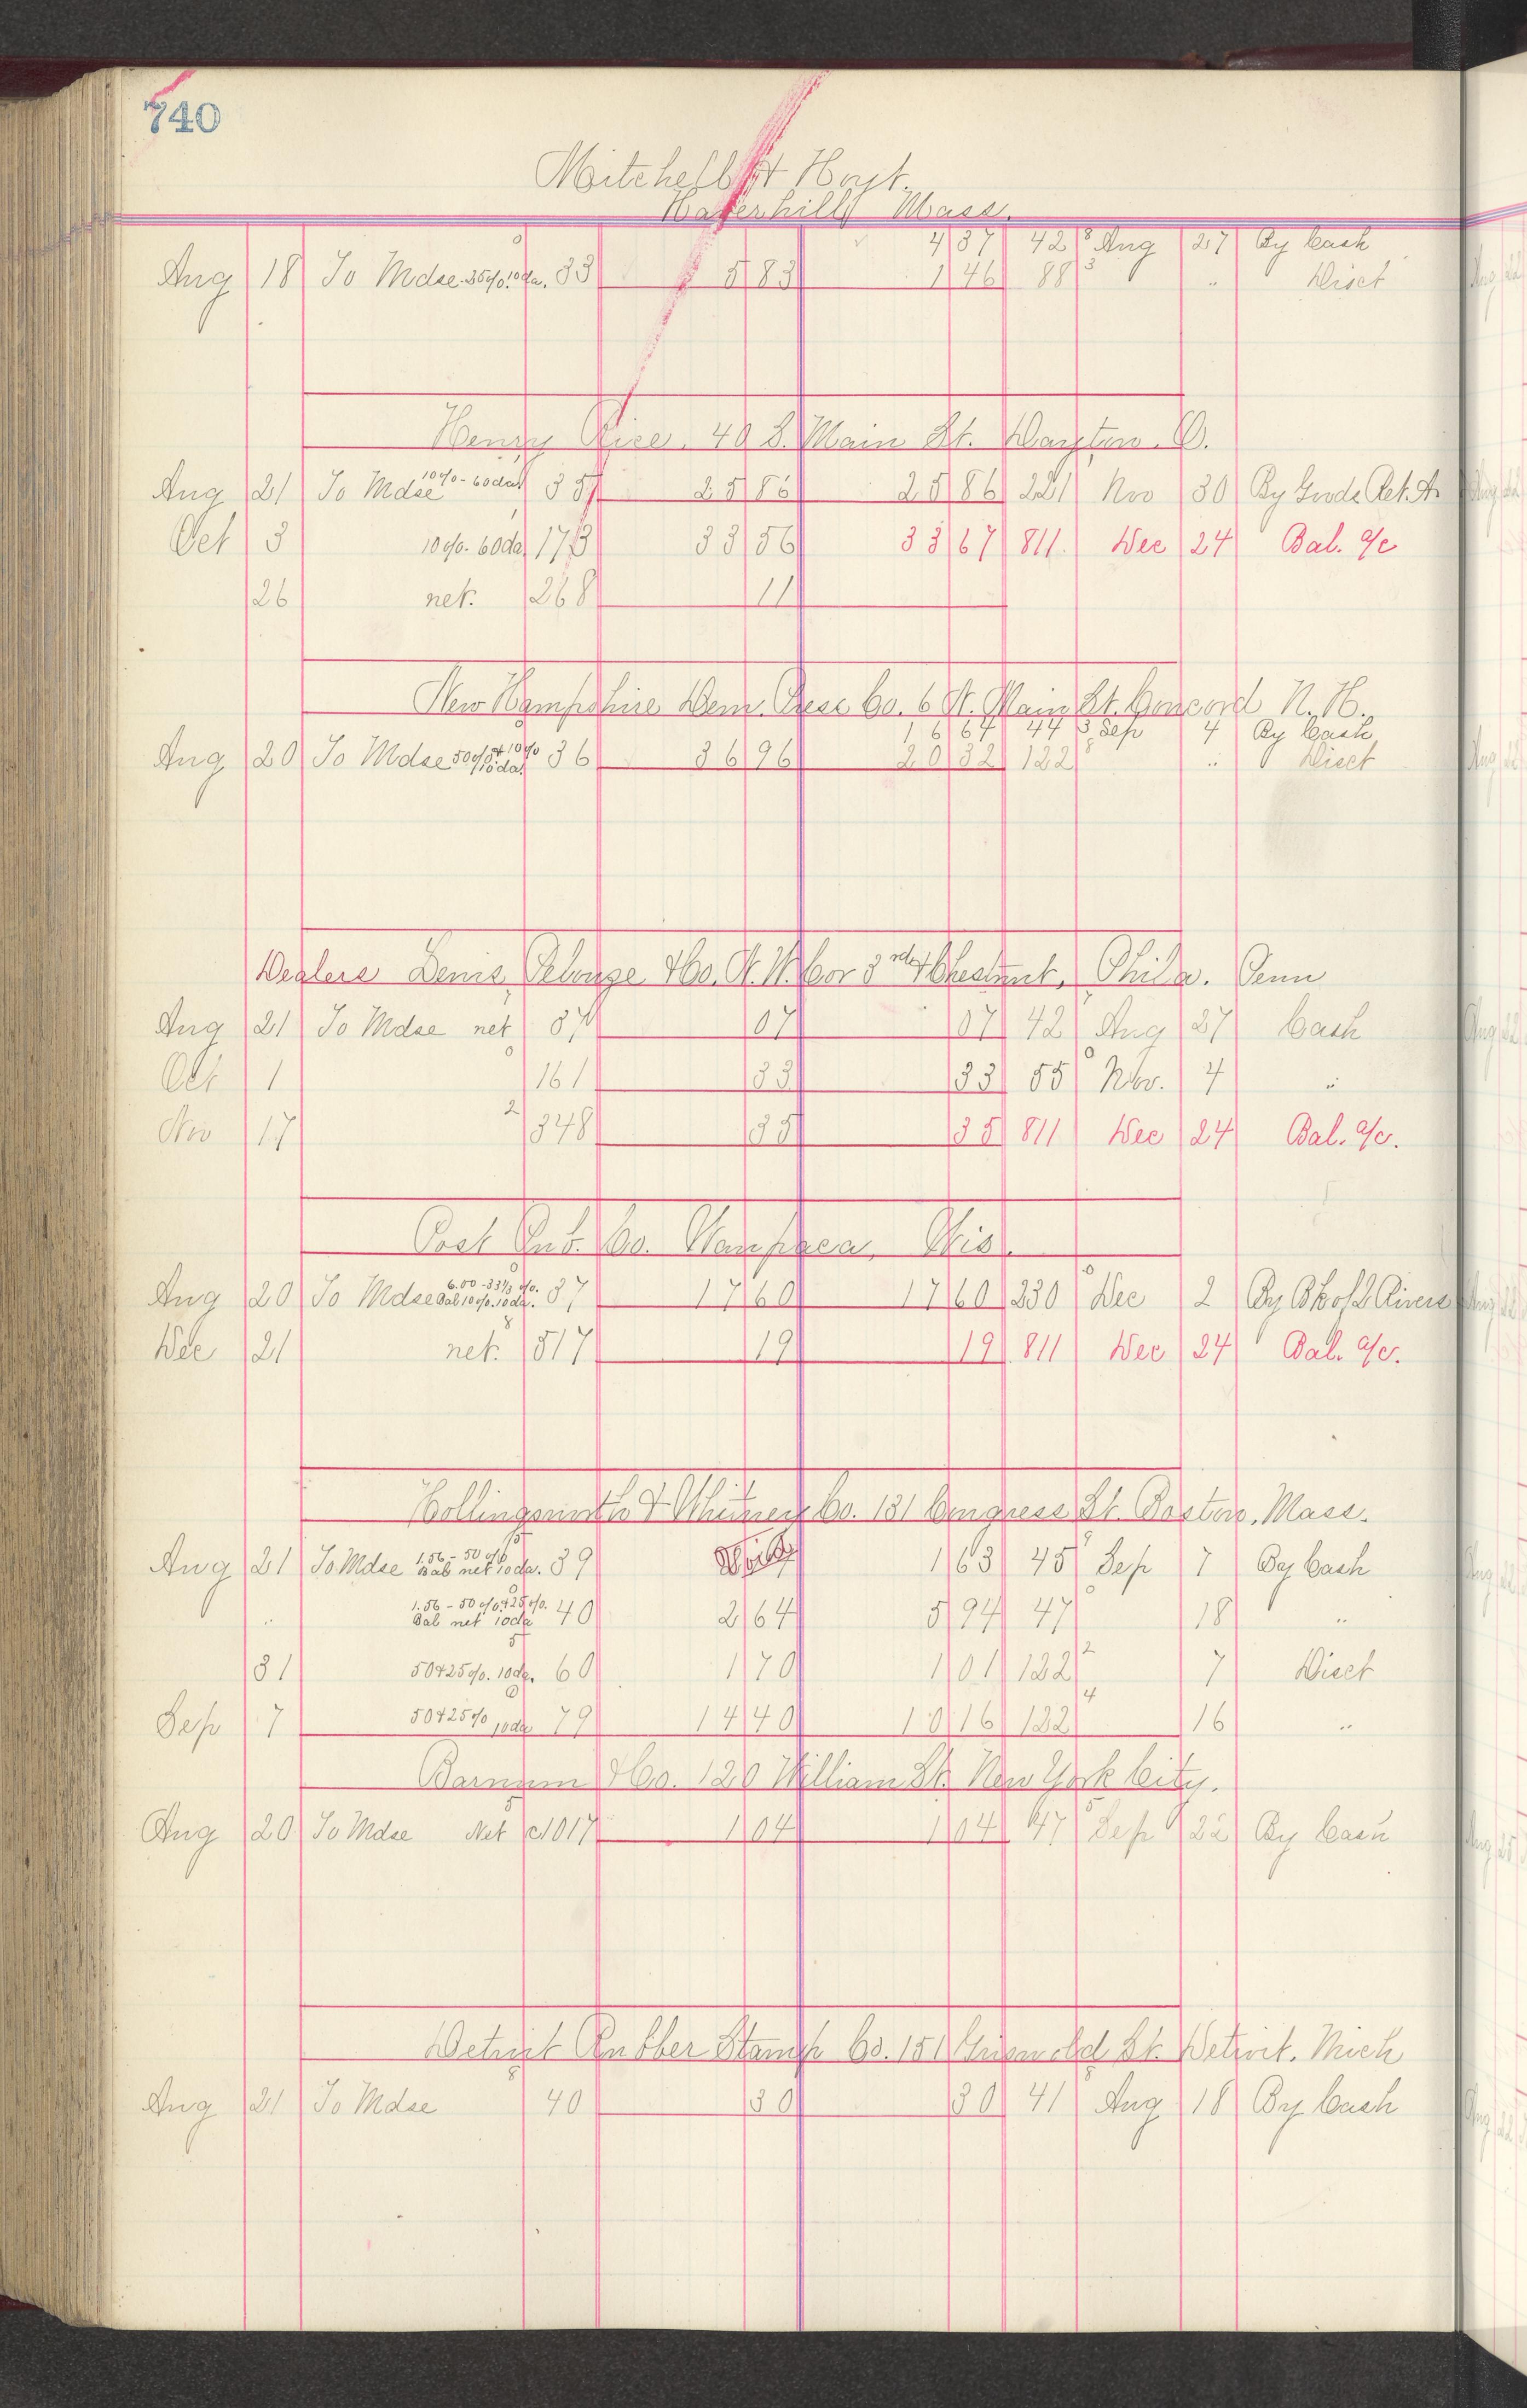 740
Mitchell & Hoyt.
Haverhill Mass.
0 4 37 42 8 Aug 27 By Cash
Aug 18 To Mdse 35%. 10da. 33 5 83 1 46 88 3 " Disct
Henry Rice. 40 S. Main St. Dayton. O.
Aug 21 To Mdse 10%-60da. 35 25 86 25 86 221 Nov 30 By Goods Ret.
Oct 3 10%. 60da 173 33 56 33 67 811 Dec 24 Bal. a/c
26 net. 268 11
New Hampshire Dem. Press Co. 6 N. Main St. Concord N. H.
16 64 44 3 Sep 4 By Cash
Aug 20 To Mdse 50% & 10% 10da. 36 36 96 20 32 122 8 " Disct
Dealers Lewis Pelouze & Co. N. W. Cor 3rd & Chestnut, Phila. Penn
Aug 21 To Mdse net 37 07 07 42 Aug 27 Cash
Oct 1 0 161 33 33 55 0 Nov. 4 "
Nov 17 2 348 35 35 811 Dec 24 Bal. a/c.
Post Pub. Co. Waupaca, Wis.
Aug 20 To Mdse 6.00-33 1/3 %. Bal 10%. 10da. 37 17 60 17 60 230 Dec 2 By Bk of 2 Rivers
Dec 21 8 net. 517 19 19 811 Dec 24 Bal. a/c.
Hollingsworth & Whitney Co. 131 Congress St. Boston, Mass.
Aug 21 To Mdse 1.56-50% Bal net 10da. 39 Void 1 63 45 Sep 7 By Cash
" 1.56-50% & 25%. Bal net 10da 40 2 64 5 94 47 0 18 "
31 5 50 & 25%. 10da. 60 1 70 1 01 122 2 7 Disct
Sep 7 50 & 25% 10da 79 14 40 10 16 122 4 16 "
Barnum & Co. 120 William St. New York City.
Aug 20 To Mdse Net 5 1017 1 04 1 04 47 5 Sep 22 By Cash
Detroit Rubber Stamp Co. 151 Griswold St. Detroit. Mich
Aug 21 To Mdse 8 40 30 30 41 8 Aug 18 By Cash